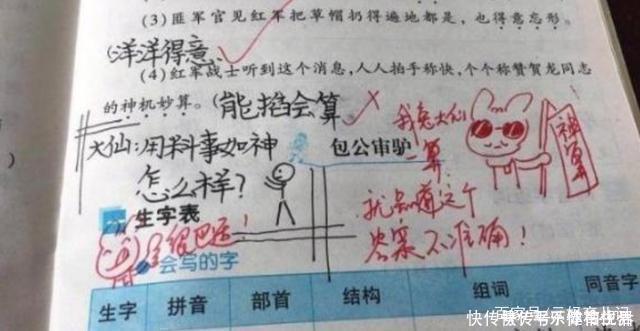 (3)匪军官见红军把草帽扔得遍地都是，也得意忘形。
(洋洋得意)
(4)红军战士听到这个消息，人人拍手称快，个个称赞贺龙同志
的神机妙算。(能掐会算)
我兔大仙
一算，
就知道这个
答案不准确！
神算
大仙：用料事如神
怎么样？
包公审驴
生字表
会写的字
生字 拼音 部首 结构 组词 同音字